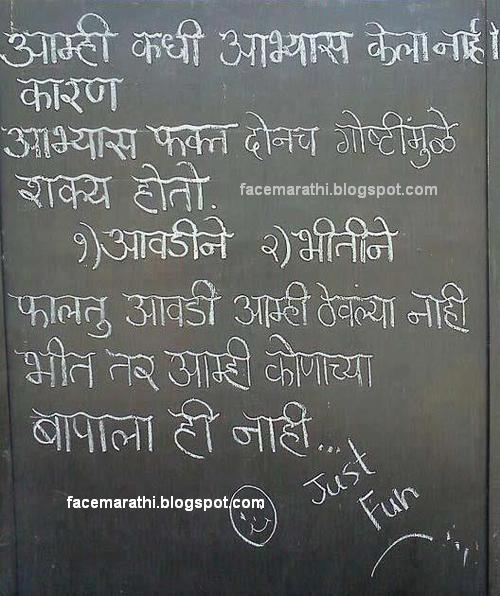 आम्ही कधी आभ्यास केला नाही।
कारण
आभ्यास फक्त दोनच गोष्टींमुळे
शक्य होतो.
facemarathi.blogspot.com
१) आवडीने २) भीतीने
फालतु आवडी आम्ही ठेवल्या नाही
भीत तर आम्ही कोणाच्या
बापाला ही नाही...
Just
Fun
facemarathi.blogspot.com